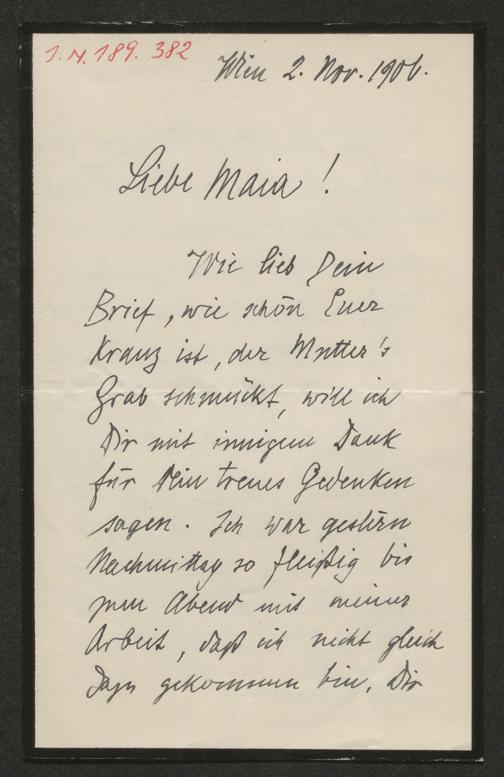 I.N. 189.382
Wien 2. Nov. 1906.
Liebe Maia!
Wie lieb Dein
Brief, wie schön Euer
Kranz ist, der Mutter's
Grab schmückt, will ich
Dir mit innigem Dank
für Dein treues Gedenken
sagen. Ich war gestern
Nachmittag so fleißig bis
zum Abend mit meiner
Arbeit, daß ich nicht gleich
dazu gekommen bin, Dir